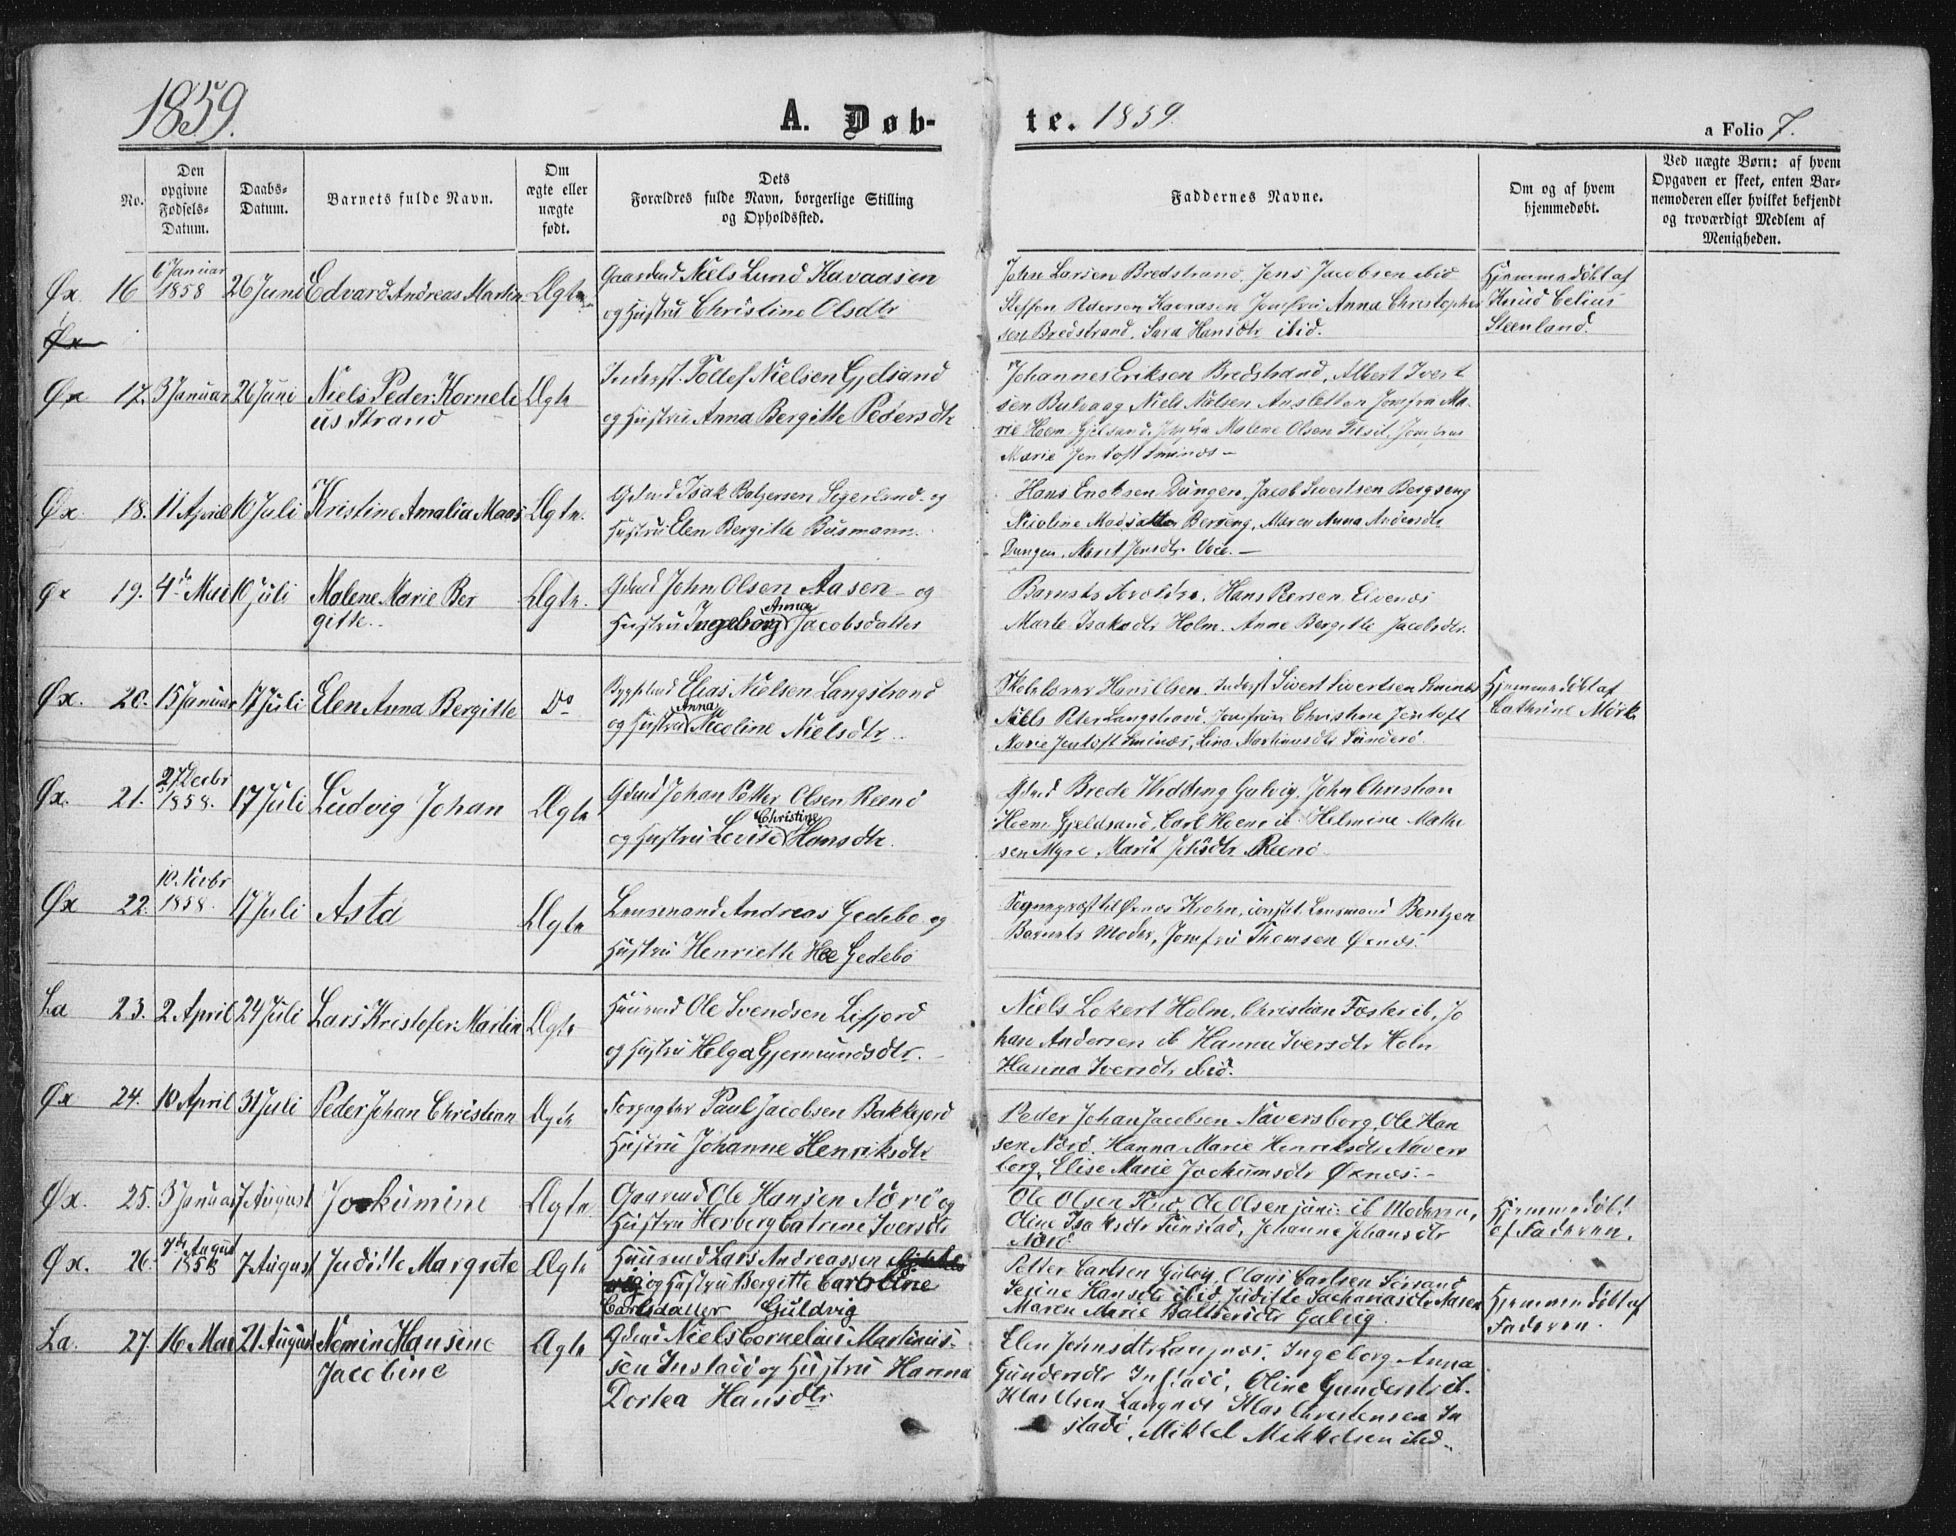 1859.
A. Døb-
te. 1859.
a Folio 7.
No.
Den opgivne Fødsels-Datum.
Daabs-Datum.
Barnets fulde Navn.
Om ægte eller uægte født.
Dets Forældres fulde Navn, borgerlige Stilling og Opholdssted.
Faddernes Navne.
Om og af hvem hjemmedøbt.
Ved uægte Børn: af hvem Opgaven er skeet, enten Barnemoderen eller hvilket bekjendt og troværdigt Medlem af Menigheden.
Øx. 16 6 Januar 1858 26 Juni Edvard Andreas Martin Ægte
Gaardmd Niels Lund Kavaasen
og Hustru Christine Olsdtr
John Larsen Bredstrand, Jens Jacobsen ibid
Steffen Pedersen Kavaasen Jomfru Anna Christopher
sen Bredstrand, Sara Hansdtr ibid.
Hjemmedøbt af
Knud Celius
Steenland.
Øx
Øx 17. 3 Januar 26 Juni Niels Peder Korneli
us Strand
Ægte
Inderst. Tollef Nielsen Gjelsand
og Hustru Anna Bergitte Pedersdtr
Johannes Eriksen Bredstrand, Albert Ivert
sen Niels Nielsen Jomfru Ma-
rie Hoem Gjelsand, Malene Olsen Jomfru
Marie Jentoft Sminæs –
Øx. 18. 11 April 10 Juli Kristine Amalia Maas Ægte.
Gdmd Isak Balzersen og
Hustru Elen Bergitte Busmann.
Hans Enoksen Dungen, Jacob Sivertsen Bergseng
Nicoline Madsdatter Maren Anna Andersdtr
Dungen, Marit Jonsdtr –
Øx 19. 4de Mai 10 Juli Malene Marie Ber
gitte..
Ægte.
Gdmd John Olsen Aasen – og
Hustru Ingeborg Anna Jacobsdatter
Barnets Forældre, Hans Eivenæs
Marte Isaksdtr Holm. Anne Bergitte Jacobsdtr.
Øx. 20. 15 Januar 17 Juli Elen Anna Bergitte Do
Bygselmd Elias Nielsen Langstrand
og Hustru Anna Nicoline Nielsdtr..
Skolelærer Hans Olsen, Inderst Sivert Sivertsen Sminæs
Niels Peter Langstrand, Jomfruen Christine Jentoft
Marie Jentoft Sminæs, Lina Martinusdtr
Hjemmedøbt af
Cathrine Mørk
Øx. 21. 27 Decbr 1858. 17 Juli Ludvig Johan Ægte
Gdmd Johan Petter Olsen Reenø
og Hustru Lovise Christine Hansdtr.
Gdmd Brede Widding Gulvig, John Christian
Hoem Gjeldsand, Carl Hoem ib Helmine Mathi
sen Myre Marit Reenø
Øx 22. 10. Novbr 1858. 17 Juli Asta Ægte
Lensmand Andreas Gedebo og
Hustru Henriette Hoe Gedebo
Sognepræst til Øxnæs Krohn, const. Lensmand Bentzen
Barnets Moder, Jomfru Thomsen Øxnæs.
La 23. 2 April 24 Juli Lars Kristofer Martin Ægte
Huusmd Ole Svendsen Lifjord
og Hustru Helga Gjermundsdtr. –
Niels Lokert Holm, Christian Foster ib, Jo
han Andersen ib Hanna Iversdtr Holm
Hanna Iversdtr ibid.
Øx 24. 10 April 31 Juli Peder Johan Christian Ægte
Forpagter Paul Jacobsen Bakkejord
Hustru Johanne Henriksdtr
Peder Johan Jacobsen Naversborg, Ole Han
sen Nærø, Hanna Marie Henriksdtr Navers
borg, Elise Marie Jochumsdtr Øxnæs. –
Øx. 25. 3 Januar 7 August Jockumine Ægte.
Gaardmd Ole Hansen Nærø og
Hustru Herberg Catrine Iversdtr
Ole Olsen Ole Olsen juni: ib Moderen,
Oline Isaksdtr Tunstad, Johanne Johansdtr
Nærø
Hjemmedøbt
af Faderen.
Øx. 26. 7de August 1858 7 August Juditte Margrete Ægte
Huusmd Lars Andreassen
og Hustru Bergitte Caroline
Carlsdatter Guldvig
Petter Carlsen Gulvig, Claus Carlsen
Serine Hansdtr ibid, Juditte Sachariasdtr Aasen
Maren Marie Baltzersdtr Gulvig.
Hjemmedøbt af
Faderen.
La. 27. 16 Mai 21 August Nemine Hansine
Jacobine
Ægte
Gdmd Niels Cornelius Martinus-
sen Instadø og Hustru Hanna
Dortea Hansdtr
Elen Johnsdtr Langnæs, Ingeborg Anna
Gundersdtr Instadø, Oline Gundersdtr ib.
Klas Olsen Langnæs Klas Christensen In
stadø, Mikkel Mikkelsen ibid..